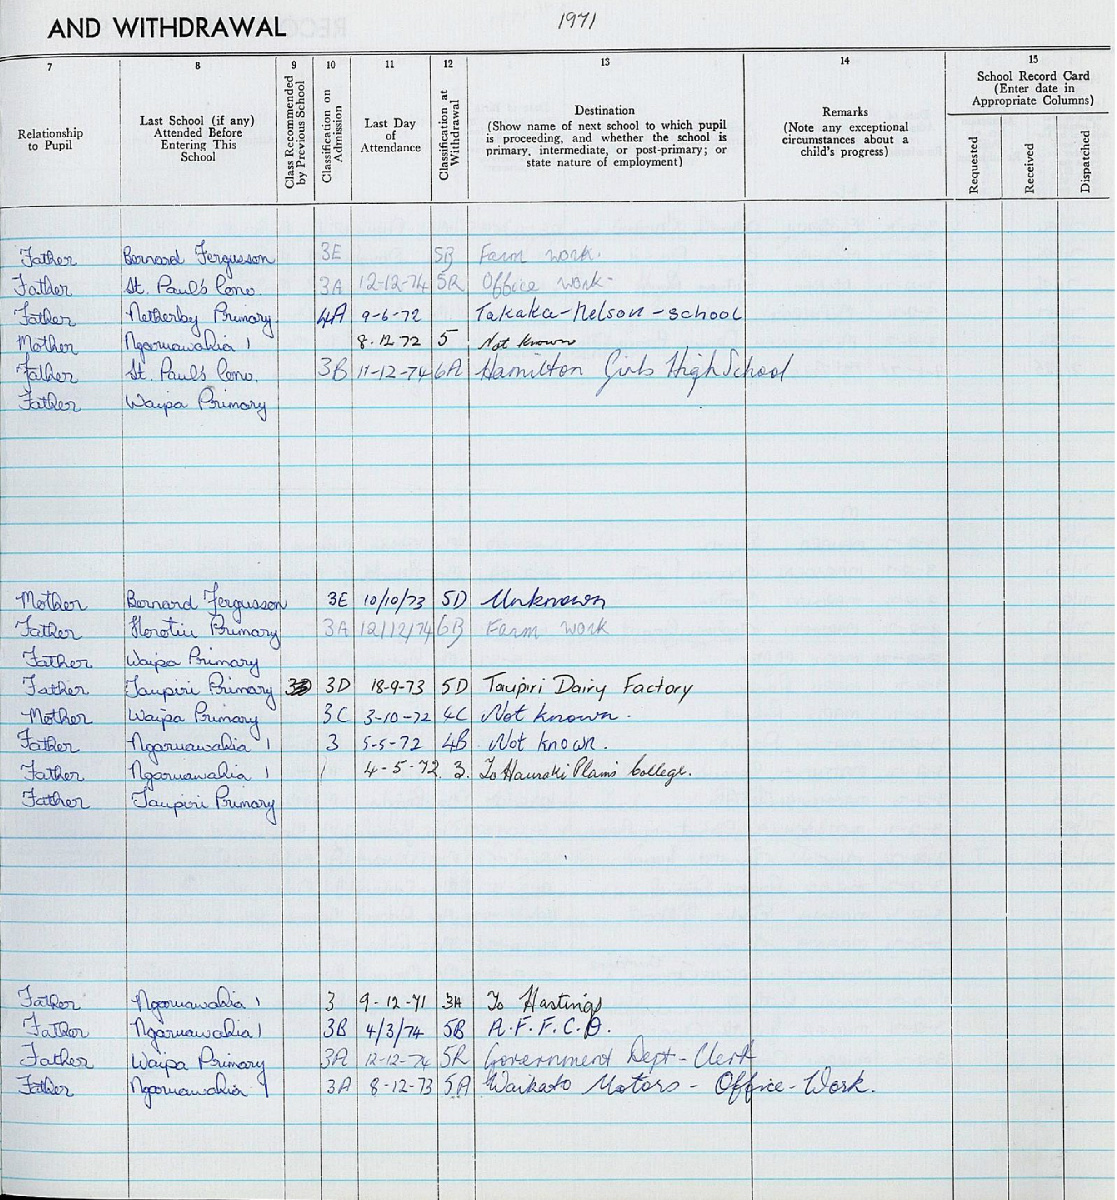 AND WITHDRAWAL 1971
7 8 9 10 11 12 13 14 15
Relationship to Pupil
Last School (if any) Attended Before Entering This School
Class Recommended by Previous School
Classification on Admission
Last Day of Attendance
Classification at Withdrawal
Destination (Show name of next school to which pupil is proceeding, and whether the school is primary, intermediate, or post-primary; or state nature of employment)
Remarks (Note any exceptional circumstances about a child's progress)
School Record Card (Enter date in Appropriate Columns)
Requested
Received
Dispatched
Father Bernard Fergusson 3E 5B Farm work.
Father St. Pauls Conv. 3A 12-12-74 5R Office work-
Father Netherby Primary 4A 9-6-72 Takaka-Nelson-school
Mother Ngaruawahia 1 8.12.72 5 Not known
Father St. Pauls Conv. 3B 11-12-74 6A Hamilton Girls High School
Father Waipa Primary
Mother Bernard Fergusson 3E 10/10/73 5D Unknown
Father Horotiu Primary 3A 12/12/74 6B Farm work
Father Waipa Primary
Father Taupiri Primary 3D 18-9-73 5D Taupiri Dairy Factory
Mother Waipa Primary 3C 3-10-72 4C Not known.
Father Ngaruawahia 1 3 5-5-72 4B Not known.
Father Ngaruawahia 1 4-5-72. 3. To Hauraki Plains College.
Father Taupiri Primary
Father Ngaruawahia 1 3 9-12-71 3A To Hastings
Father Ngaruawahia 1 3B 4/3/74 5B A.F.F.C.O.
Father Waipa Primary 3A 12-12-74 5R Government Dept-Clerk
Father Ngaruawahia 1 3A 8-12-73 5A Waikato Motors - Office-Work.